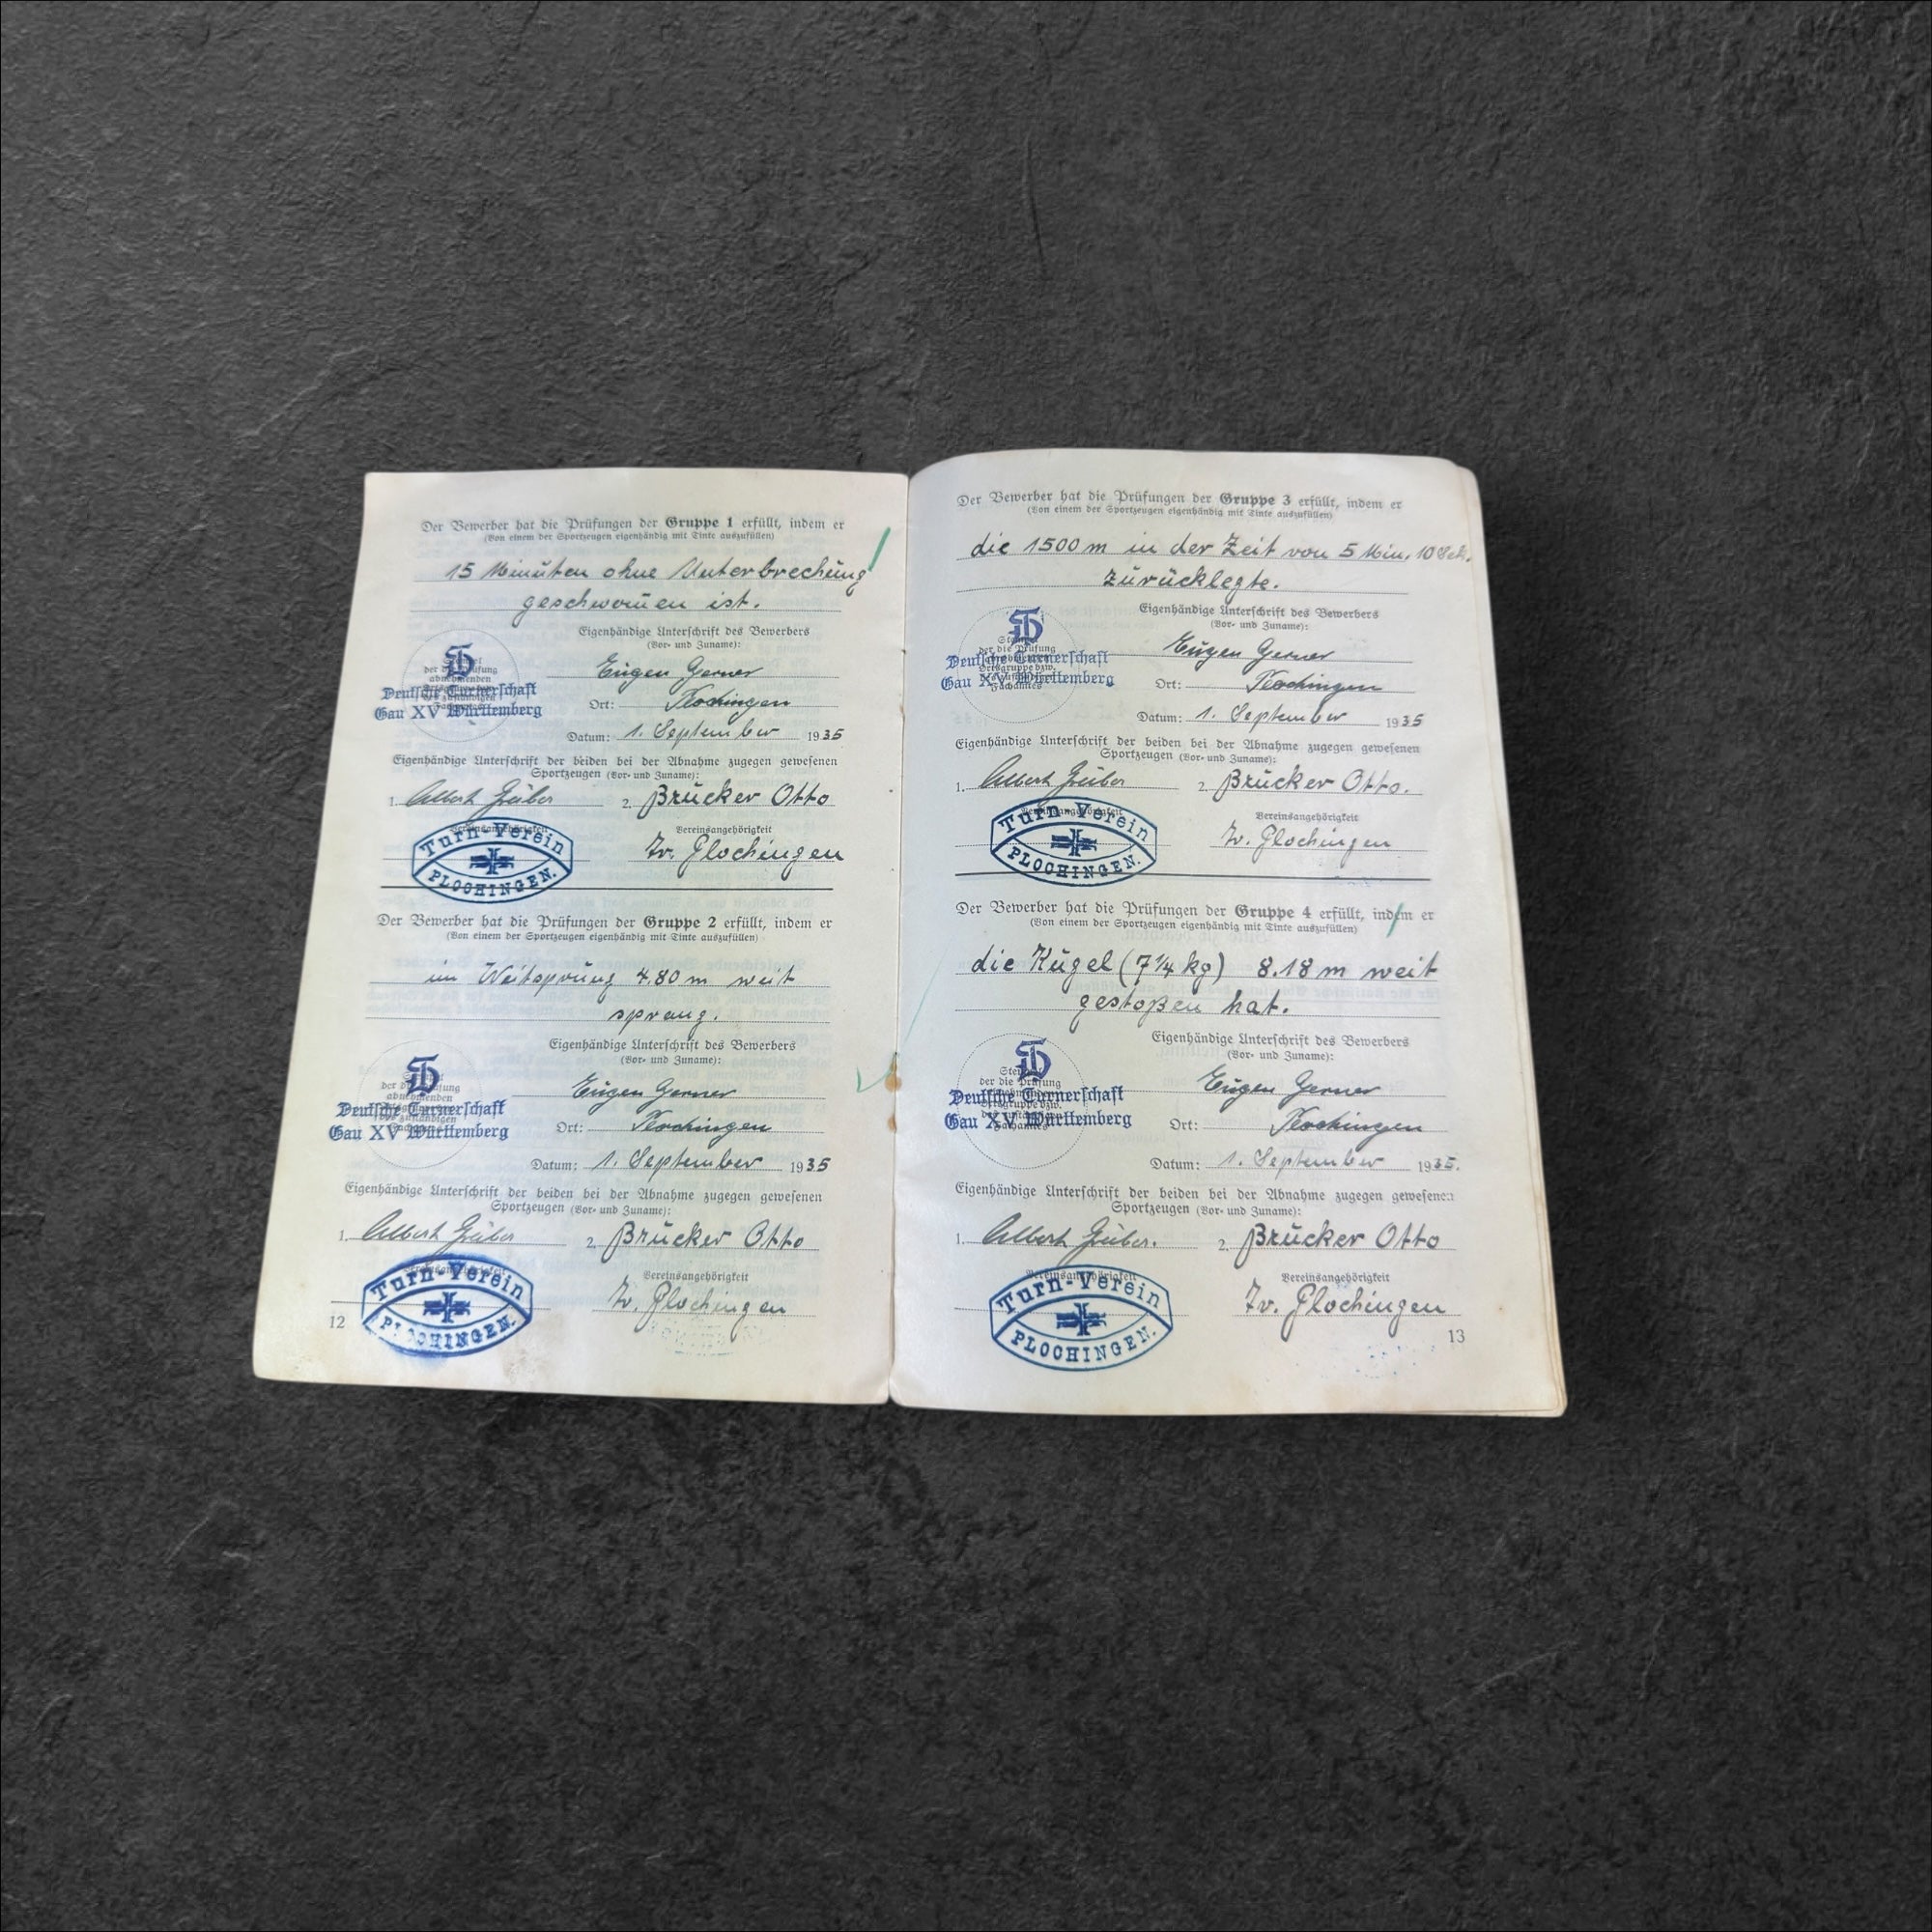 Der Bewerber hat die Prüfungen der Gruppe 1 erfüllt, indem er
(Von einem der Sportzeugen eigenhändig mit Tinte auszufüllen)
15 Minuten ohne Unterbrechung
geschwom̄en ist.
Eigenhändige Unterschrift des Bewerbers
(Vor- und Zuname):
Eugen Gerner
Deutsche Turnerschaft
Gau XV Württemberg
Ort: Plochingen
Datum: 1. September 1935
Eigenhändige Unterschrift der beiden bei der Abnahme zugegen gewesenen
Sportzeugen (Vor- und Zuname):
1. Albert Gruber 2. Brücker Otto
Vereinsangehörigkeit Vereinsangehörigkeit
Turn-Verein
PLOCHINGEN.
Tv. Plochingen
Der Bewerber hat die Prüfungen der Gruppe 2 erfüllt, indem er
(Von einem der Sportzeugen eigenhändig mit Tinte auszufüllen)
im Weitsprung 4.80 m weit
sprang.
Eigenhändige Unterschrift des Bewerbers
(Vor- und Zuname):
Eugen Gerner
Deutsche Turnerschaft
Gau XV Württemberg
Ort: Plochingen
Datum: 1. September 1935
Eigenhändige Unterschrift der beiden bei der Abnahme zugegen gewesenen
Sportzeugen (Vor- und Zuname):
1. 2. Brücker Otto
Vereinsangehörigkeit Vereinsangehörigkeit
Turn-Verein
PLOCHINGEN.
Tv. Plochingen
12
Der Bewerber hat die Prüfungen der Gruppe 3 erfüllt, indem er
(Von einem der Sportzeugen eigenhändig mit Tinte auszufüllen)
die 1500 m in der Zeit von 5 Min. 10 Sek.
zurücklegte.
Eigenhändige Unterschrift des Bewerbers
(Vor- und Zuname):
Eugen Gerner
Deutsche Turnerschaft
Gau XV Württemberg
Ort: Plochingen
Datum: 1. September 1935
Eigenhändige Unterschrift der beiden bei der Abnahme zugegen gewesenen
Sportzeugen (Vor- und Zuname):
1. Albert 2. Brücker Otto.
Vereinsangehörigkeit Vereinsangehörigkeit
Turn-Verein
PLOCHINGEN.
Tv. Plochingen
Der Bewerber hat die Prüfungen der Gruppe 4 erfüllt, indem er
(Von einem der Sportzeugen eigenhändig mit Tinte auszufüllen)
die Kugel (7¼ kg) 8.18 m weit
gestoßen hat.
Eigenhändige Unterschrift des Bewerbers
(Vor- und Zuname):
Eugen Gerner
Deutsche Turnerschaft
Gau XV Württemberg
Ort: Plochingen
Datum: 1. September 1935.
Eigenhändige Unterschrift der beiden bei der Abnahme zugegen gewesenen
Sportzeugen (Vor- und Zuname):
1. Albert 2. Brücker Otto
Vereinsangehörigkeit Vereinsangehörigkeit
Turn-Verein
PLOCHINGEN.
Tv. Plochingen
13